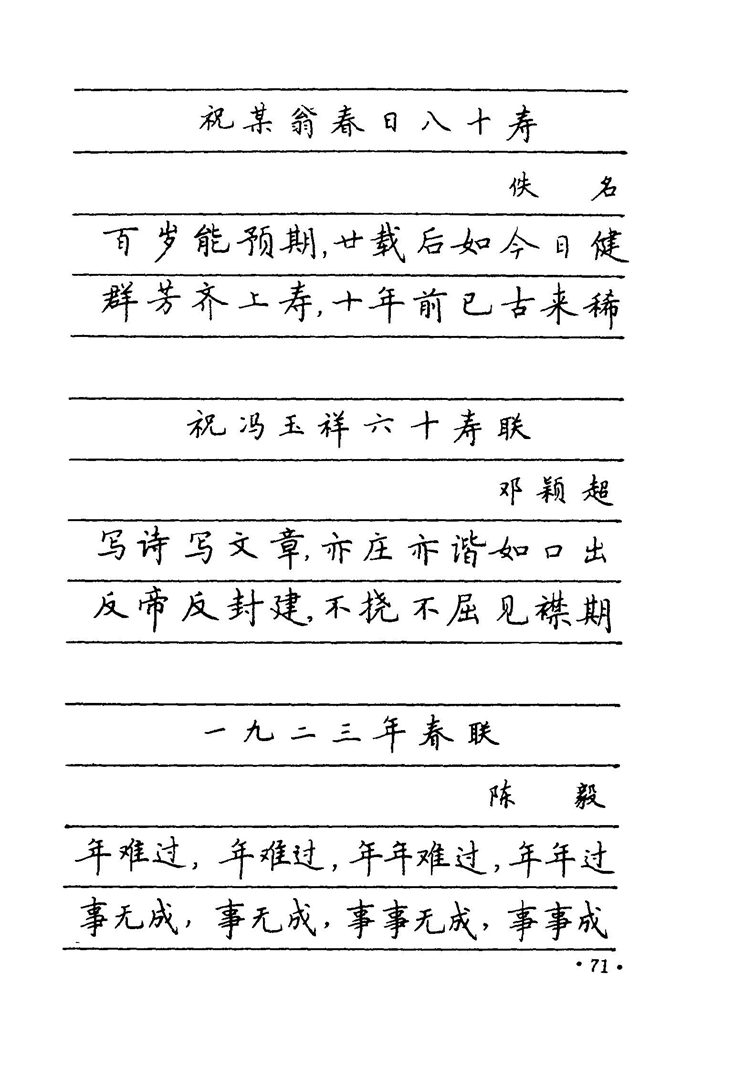 祝某翁春日八十寿
佚 名
百岁能预期,廿载后如今日健
群芳齐上寿,十年前已古来稀
祝冯玉祥六十寿联
邓颖超
写诗写文章,亦庄亦谐如口出
反帝反封建,不挠不屈见襟期
一九二三年春联
陈 毅
年难过,年难过,年年难过,年年过
事无成,事无成,事事无成,事事成
·71·